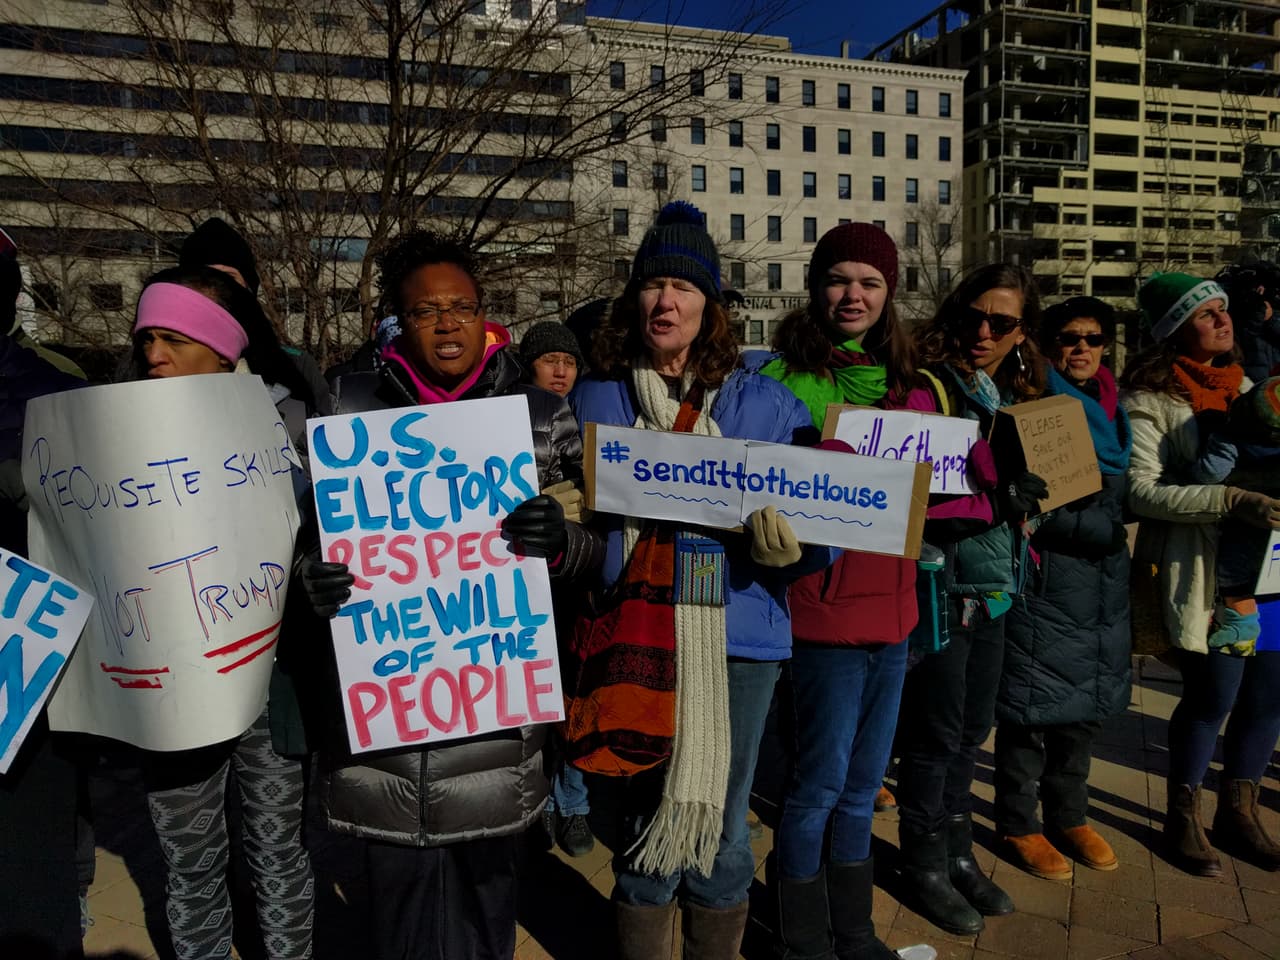 REQUISITE SKILLS?
NOT TRUMP
U.S.
ELECTORS
RESPECT
THE WILL
OF THE
PEOPLE
#sendIttotheHouse
will of the people
PLEASE
SAVE OUR
COUNTRY!
TRUMPS HATE
CELTI
ONAL THE
TE
N